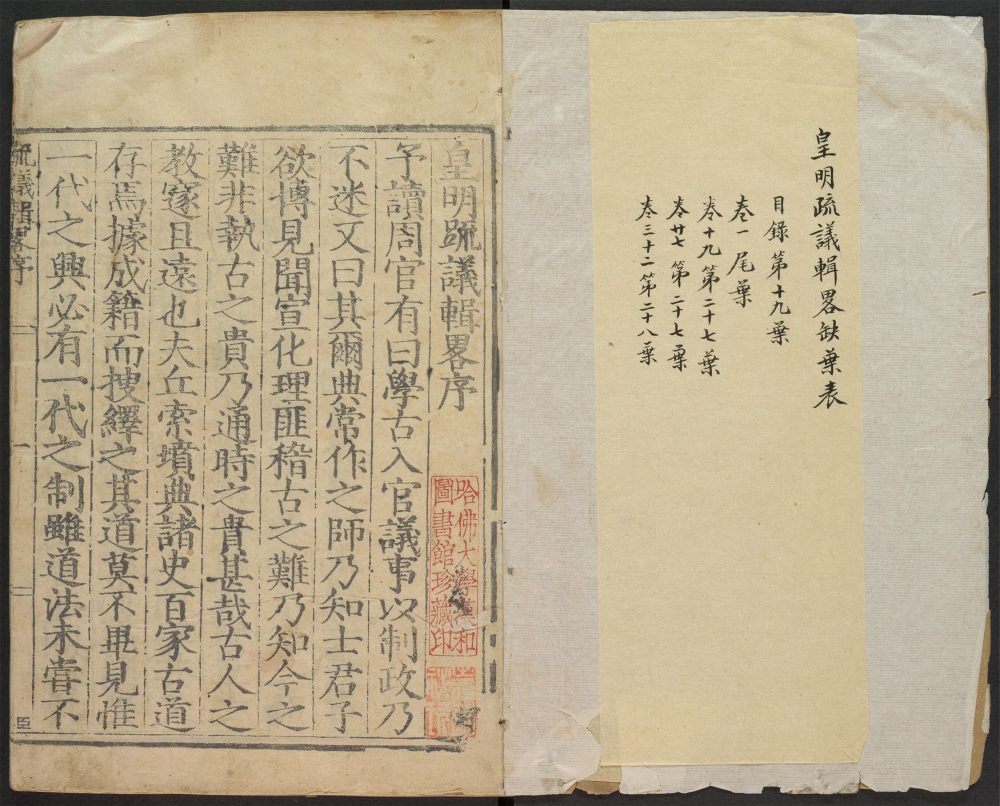 皇明疏議輯畧缺葉表
目錄第十九葉
卷一尾葉
卷十九第二十七葉
卷廿七第二十七葉
卷三十二第二十八葉
皇明疏議輯畧序
予讀周官有曰學古入官議事以制政乃
不迷又曰其爾典常作之師乃知士君子
欲博見聞宣化理匪稽古之難乃知今之
難非執古之貴乃通時之貴甚哉古人之
教邃且遠也夫丘索墳典諸史百家古道
存焉據成籍而搜繹之其道莫不畢見惟
一代之興必有一代之制雖道法未嘗不
疏議輯畧序
一
臣
哈佛大學漢和
圖書館珍藏印